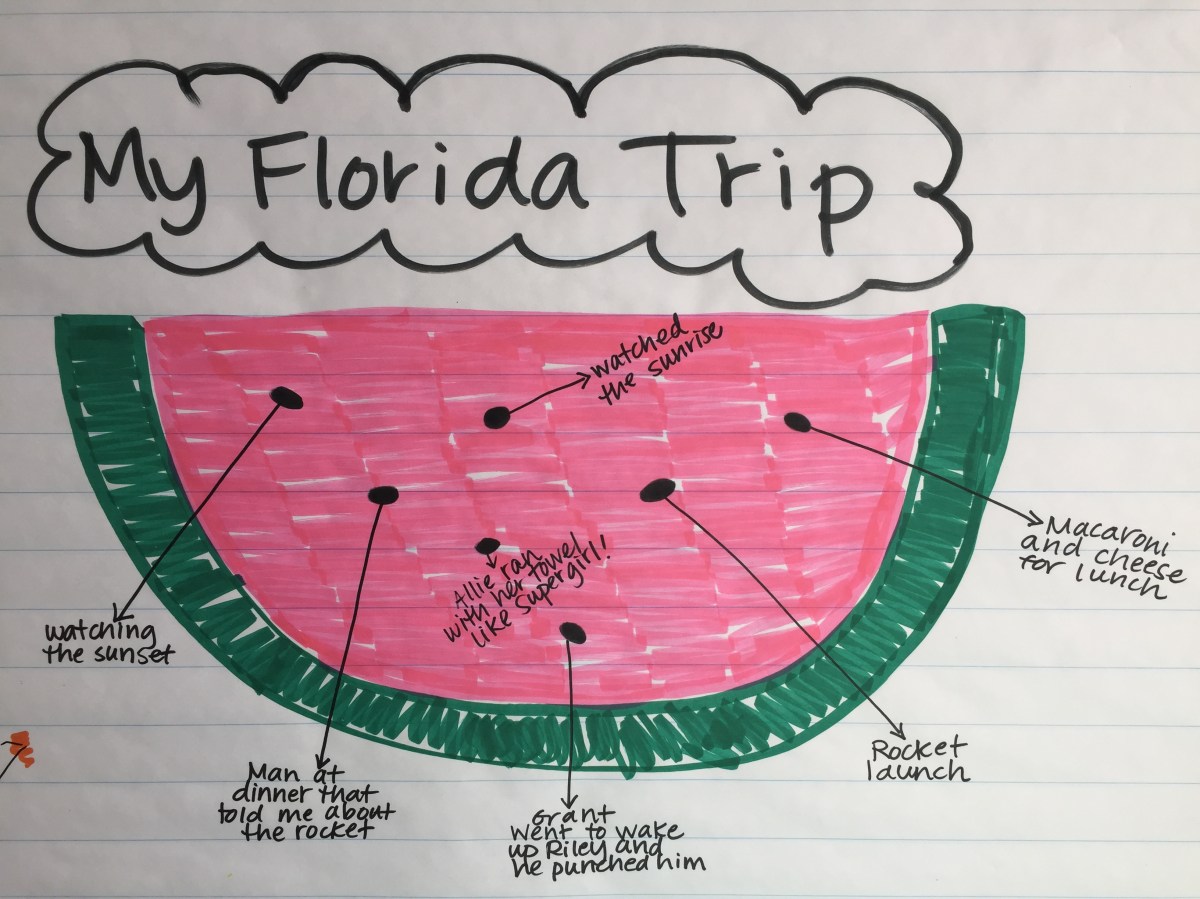 My Florida Trip
watched
the sunrise
Macaroni
and cheese
for lunch
Allie ran
with her towel
like supergirl!
watching
the sunset
Rocket
launch
Man at
dinner that
told me about
the rocket
Grant
went to wake
up Riley and
he punched him